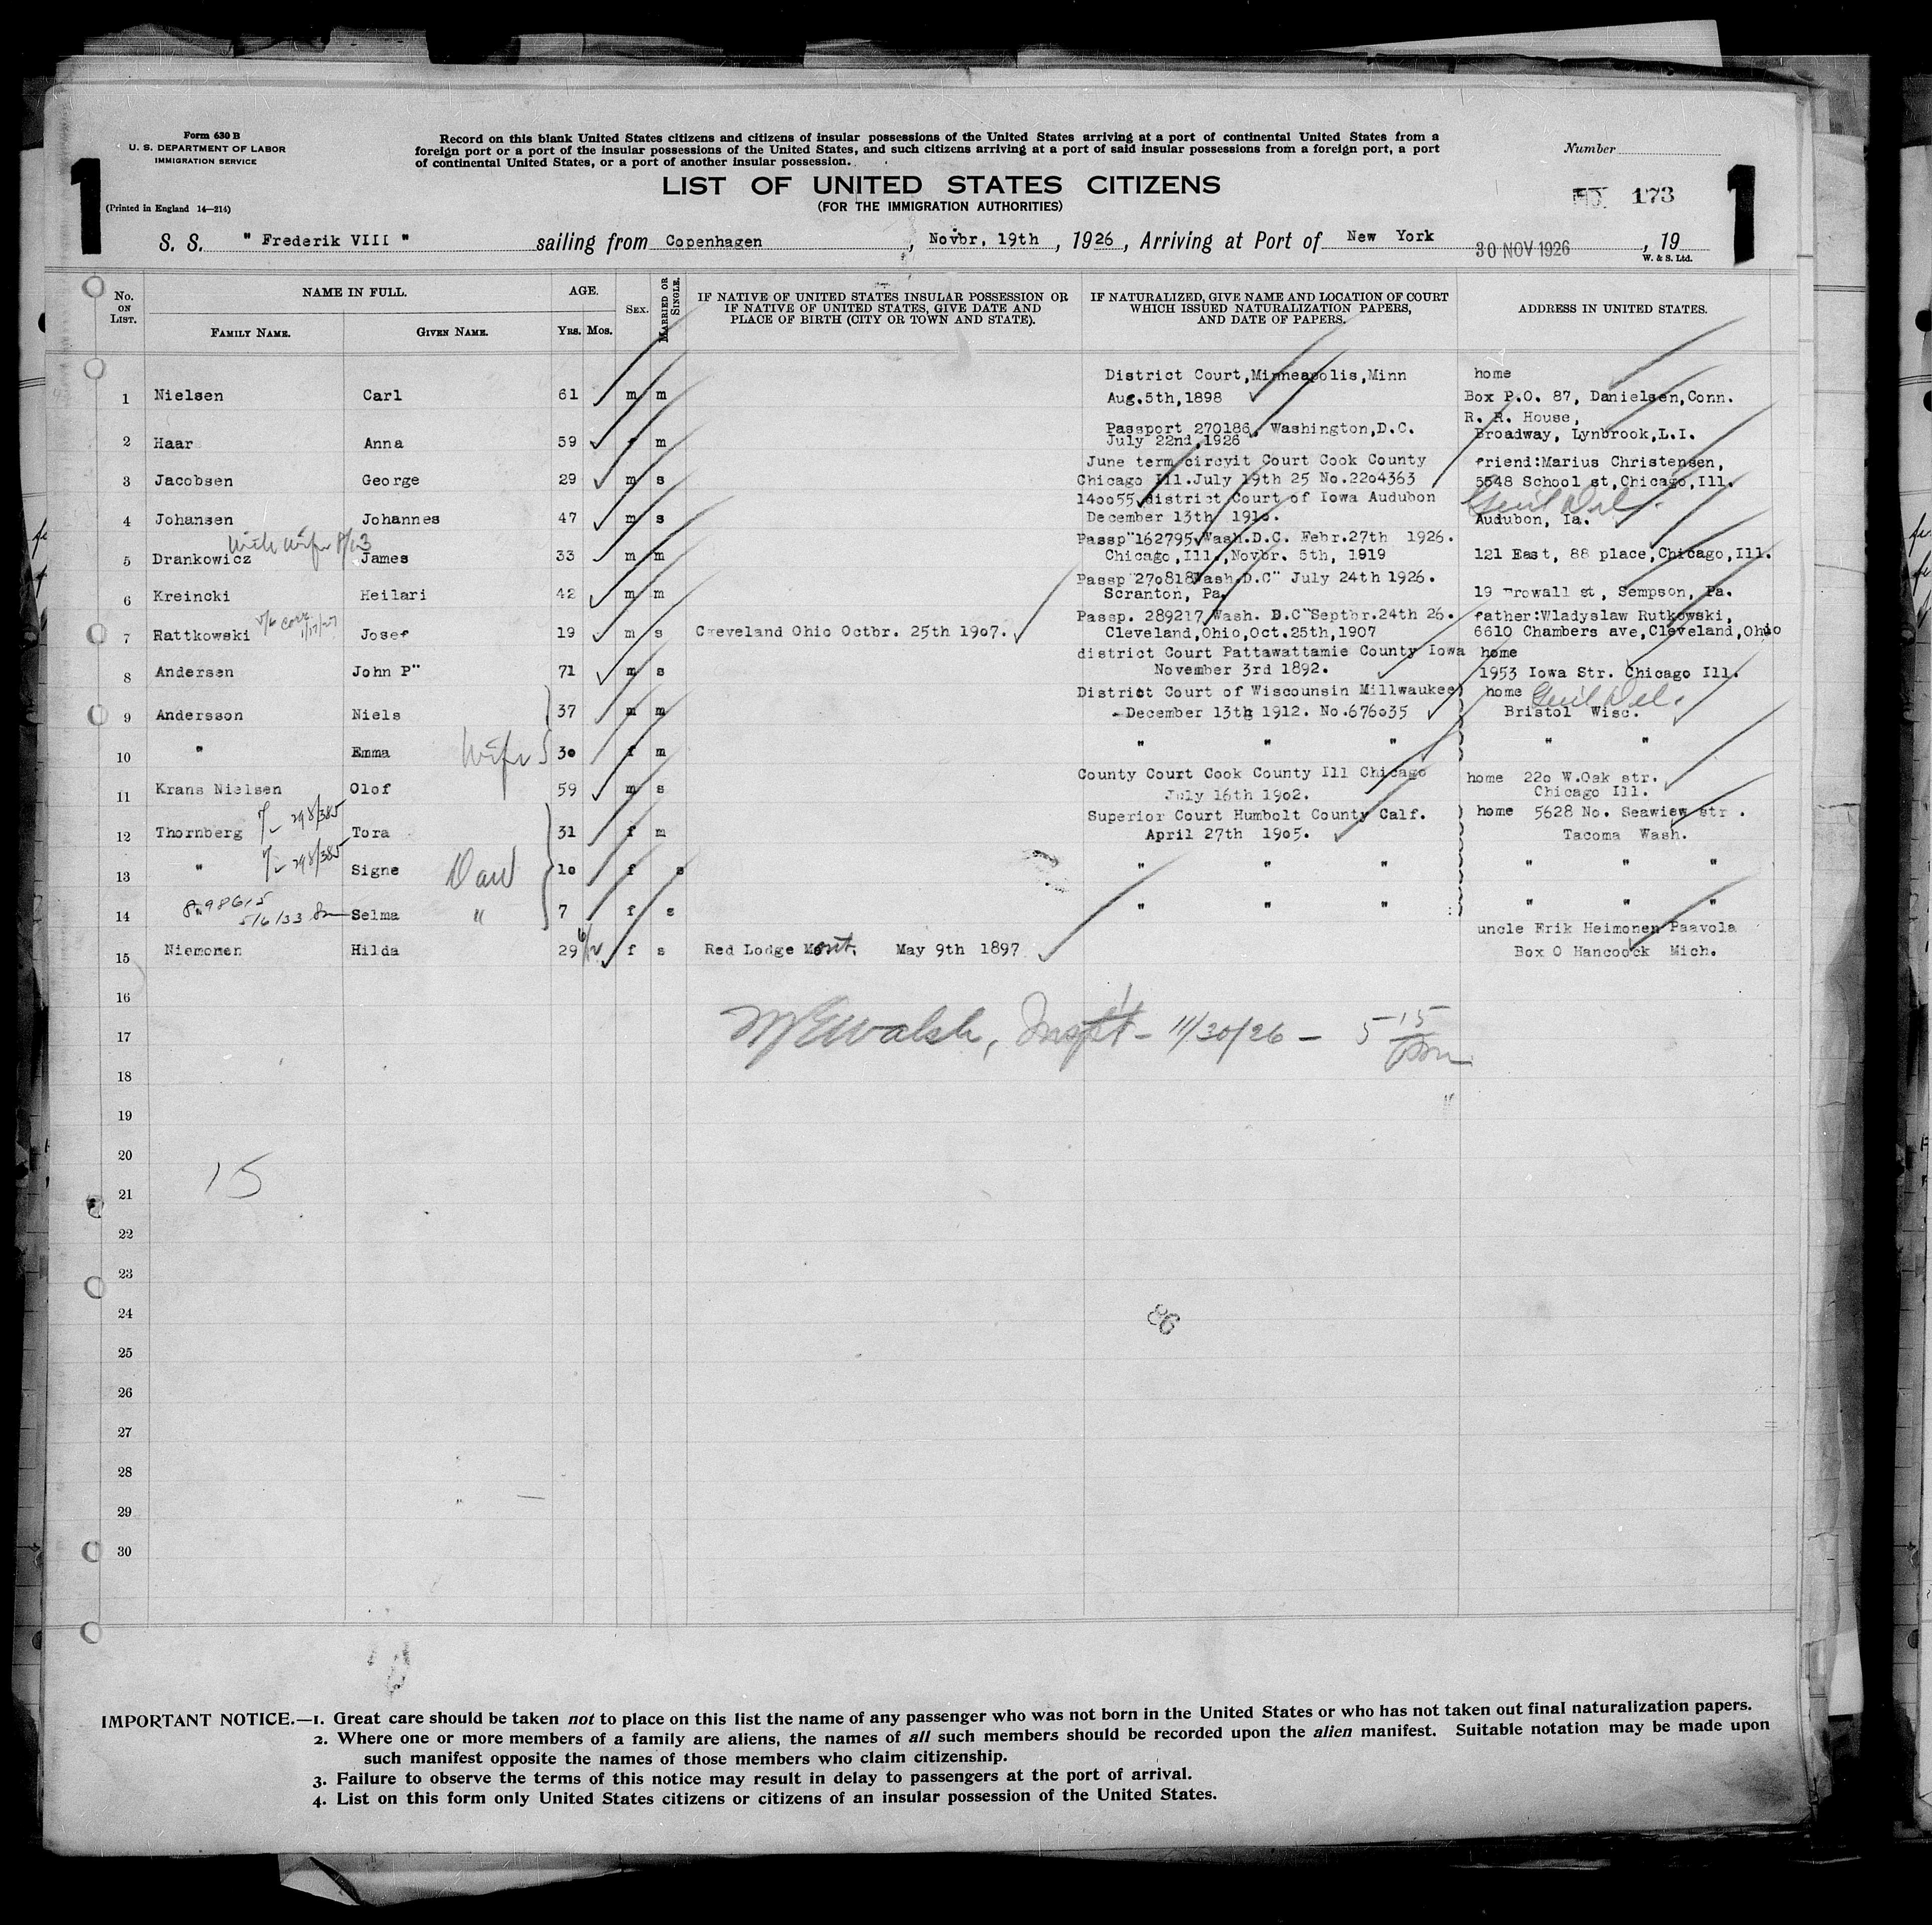 Form 630 B
U. S. DEPARTMENT OF LABOR
IMMIGRATION SERVICE
(Printed in England 14—214)
1
Record on this blank United States citizens and citizens of insular possessions of the United States arriving at a port of continental United States from a
foreign port or a port of the insular possessions of the United States, and such citizens arriving at a port of said insular possessions from a foreign port, a port
of continental United States, or a port of another insular possession.
LIST OF UNITED STATES CITIZENS
(FOR THE IMMIGRATION AUTHORITIES)
Number
173
1
S. S. " Frederik VIII " sailing from Copenhagen, Novbr, 19th, 1926, Arriving at Port of New York 30 NOV 1926, 19
W. & S. Ltd.
No. ON LIST.
NAME IN FULL.
FAMILY NAME. GIVEN NAME.
AGE.
YRS. MOS.
SEX.
MARRIED OR SINGLE.
IF NATIVE OF UNITED STATES INSULAR POSSESSION OR
IF NATIVE OF UNITED STATES, GIVE DATE AND
PLACE OF BIRTH (CITY OR TOWN AND STATE).
IF NATURALIZED, GIVE NAME AND LOCATION OF COURT
WHICH ISSUED NATURALIZATION PAPERS,
AND DATE OF PAPERS.
ADDRESS IN UNITED STATES.
District Court,Minneapolis,Minn home
1 Nielsen Carl 61 m m Aug.5th,1898 Box P.O. 87, Danielsen,Conn.
Passport 270186, Washington,D.C. R. R. House,
2 Haar Anna 59 f m July 22nd,1926 Broadway, Lynbrook,L.I.
June term circyit Court Cook County friend:Marius Christensen,
3 Jacobsen George 29 m s Chicago Ill.July 19th 25 No.2204363 5548 School st,Chicago,Ill.
140055 district Court of Iowa Audubon Genl Del.
4 Johansen Johannes 47 m s December 13th 1910. Audubon, Ia.
with wife 8/13 Passp"162795 Wash.D.C. Febr.27th 1926.
5 Drankowicz James 33 m m Chicago,Ill.,Novbr. 5th, 1919 121 East, 88 place,Chicago,Ill.
Passp"270818 Wash.D.C" July 24th 1926.
6 Kreincki Heilari 42 m m Scranton, Pa. 19 rowall st, Sempson, Pa.
1/17/27 Passp. 289217 Wash. D.C"Septbr.24th 26. father:Wladyslaw Rutkowski,
7 Rattkowski Josef 19 m s Cleveland Ohio Octbr. 25th 1907. Cleveland,Ohio,Oct.25th,1907 6610 Chambers ave,Cleveland,Ohio
district Court Pattawattamie County Iowa home
8 Andersen John P" 71 m s November 3rd 1892. 1953 Iowa Str. Chicago Ill.
District Court of Wiscounsin Millwaukee home Genl Del.
9 Andersson Niels 37 m m December 13th 1912. No.676035 Bristol Wisc.
10 " Emma wife 30 f m " " " " "
County Court Cook County Ill Chicago home 220 W.Oak str.
11 Krans Nielsen Olof 59 m s July 16th 1902. Chicago Ill.
298/385 Superior Court Humbolt County Calf. home 5628 No. Seawiew str .
12 Thornberg Tora 31 f m April 27th 1905. Tacoma Wash.
298/385
13 " Signe Dau 10 f s " " " " " "
8-98615
5/6/33
14 Selma " 7 f s " " " " " "
uncle Erik Heimonen Paavola
15 Niemonen Hilda 29 6/12 f s Red Lodge Mont. May 9th 1897 Box O Hancoock Mich.
16
17
Walsh, Inspt - 11/30/26 - 5 15 pm
18
19
20
15
21
22
23
24
86
25
26
27
28
29
30
IMPORTANT NOTICE.—1. Great care should be taken not to place on this list the name of any passenger who was not born in the United States or who has not taken out final naturalization papers.
2. Where one or more members of a family are aliens, the names of all such members should be recorded upon the alien manifest. Suitable notation may be made upon
such manifest opposite the names of those members who claim citizenship.
3. Failure to observe the terms of this notice may result in delay to passengers at the port of arrival.
4. List on this form only United States citizens or citizens of an insular possession of the United States.